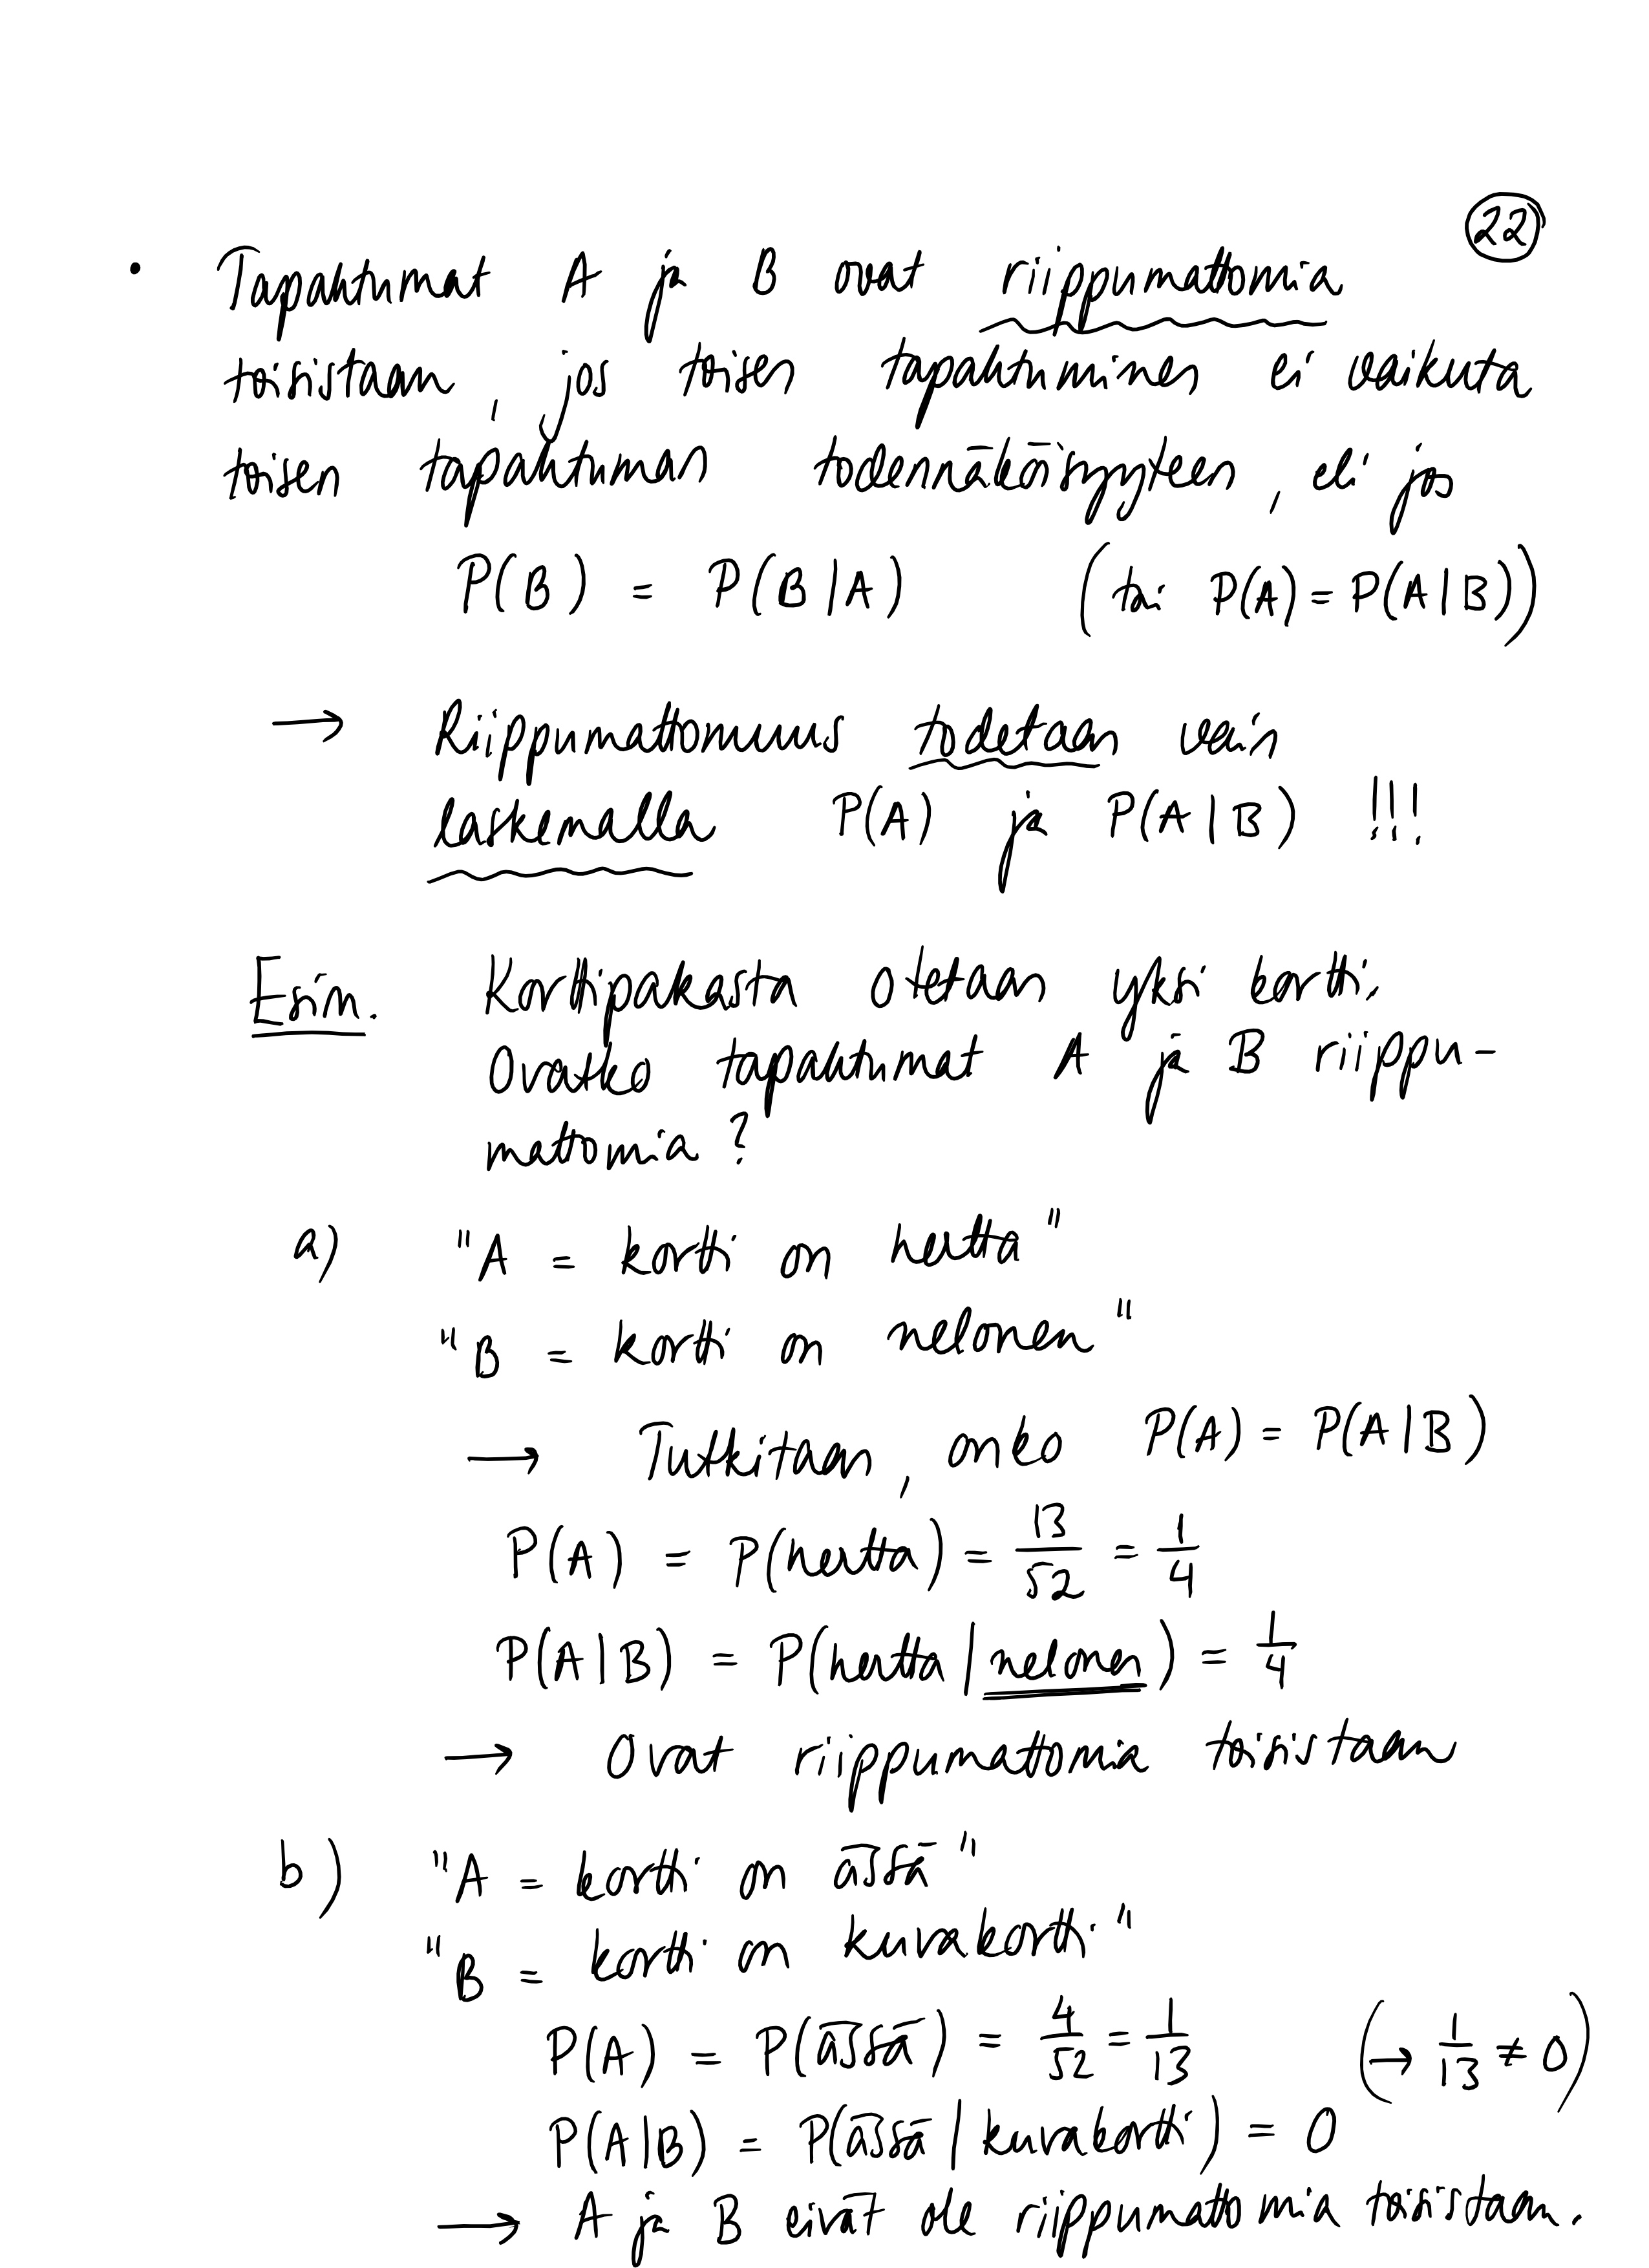 22
• Tapahtumat A ja B ovat riippumattomia
toisistaan, jos toisen tapahtuminen ei vaikuta
toisen tapahtuman todennäköisyyteen, eli jos
P(B) = P(B|A) (tai P(A) = P(A|B))
→ Riippumattomuus todetaan vain
laskemalla P(A) ja P(A|B) !!!
Esim. Korttipakasta otetaan yksi kortti.
Ovatko tapahtumat A ja B riippu-
mattomia?
a) "A = kortti on hertta"
"B = kortti on nelonen"
→ Tutkitaan, onko P(A) = P(A|B)
P(A) = P(hertta) = 13/52 = 1/4
P(A|B) = P(hertta | nelonen) = 1/4
→ Ovat riippumattomia toisistaan
b) "A = kortti on ässä"
"B = kortti on kuvakortti"
P(A) = P(ässä) = 4/52 = 1/13 (→ 1/13 ≠ 0)
P(A|B) = P(ässä | kuvakortti) = 0
→ A ja B eivät ole riippumattomia toisistaan.